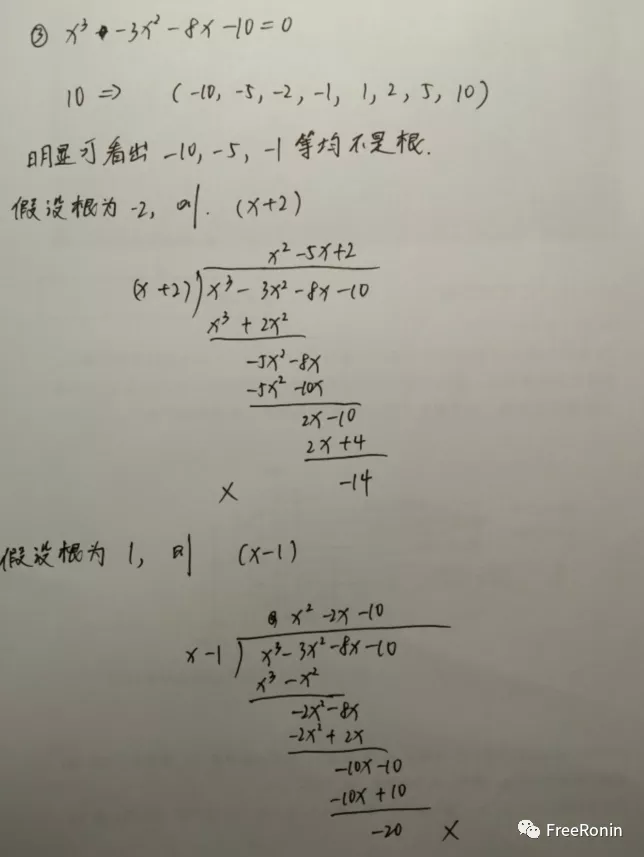 ③ x³ -3x² -8x -10=0
10 => (-10, -5, -2, -1, 1, 2, 5, 10)
明显可看出 -10, -5, -1 等均不是根.
假设根为 -2, 则. (x+2)
x² -5x+2
(x+2) x³ - 3x² -8x -10
x³ + 2x²
-5x² -8x
-5x² -10x
2x -10
2x +4
-14
X
假设根为 1, 则 (x-1)
x² -2x -10
x -1 ) x³ -3x² -8x -10
x³ -x²
-2x² -8x
-2x² + 2x
-10x -10
-10x + 10
-20 X
FreeRonin